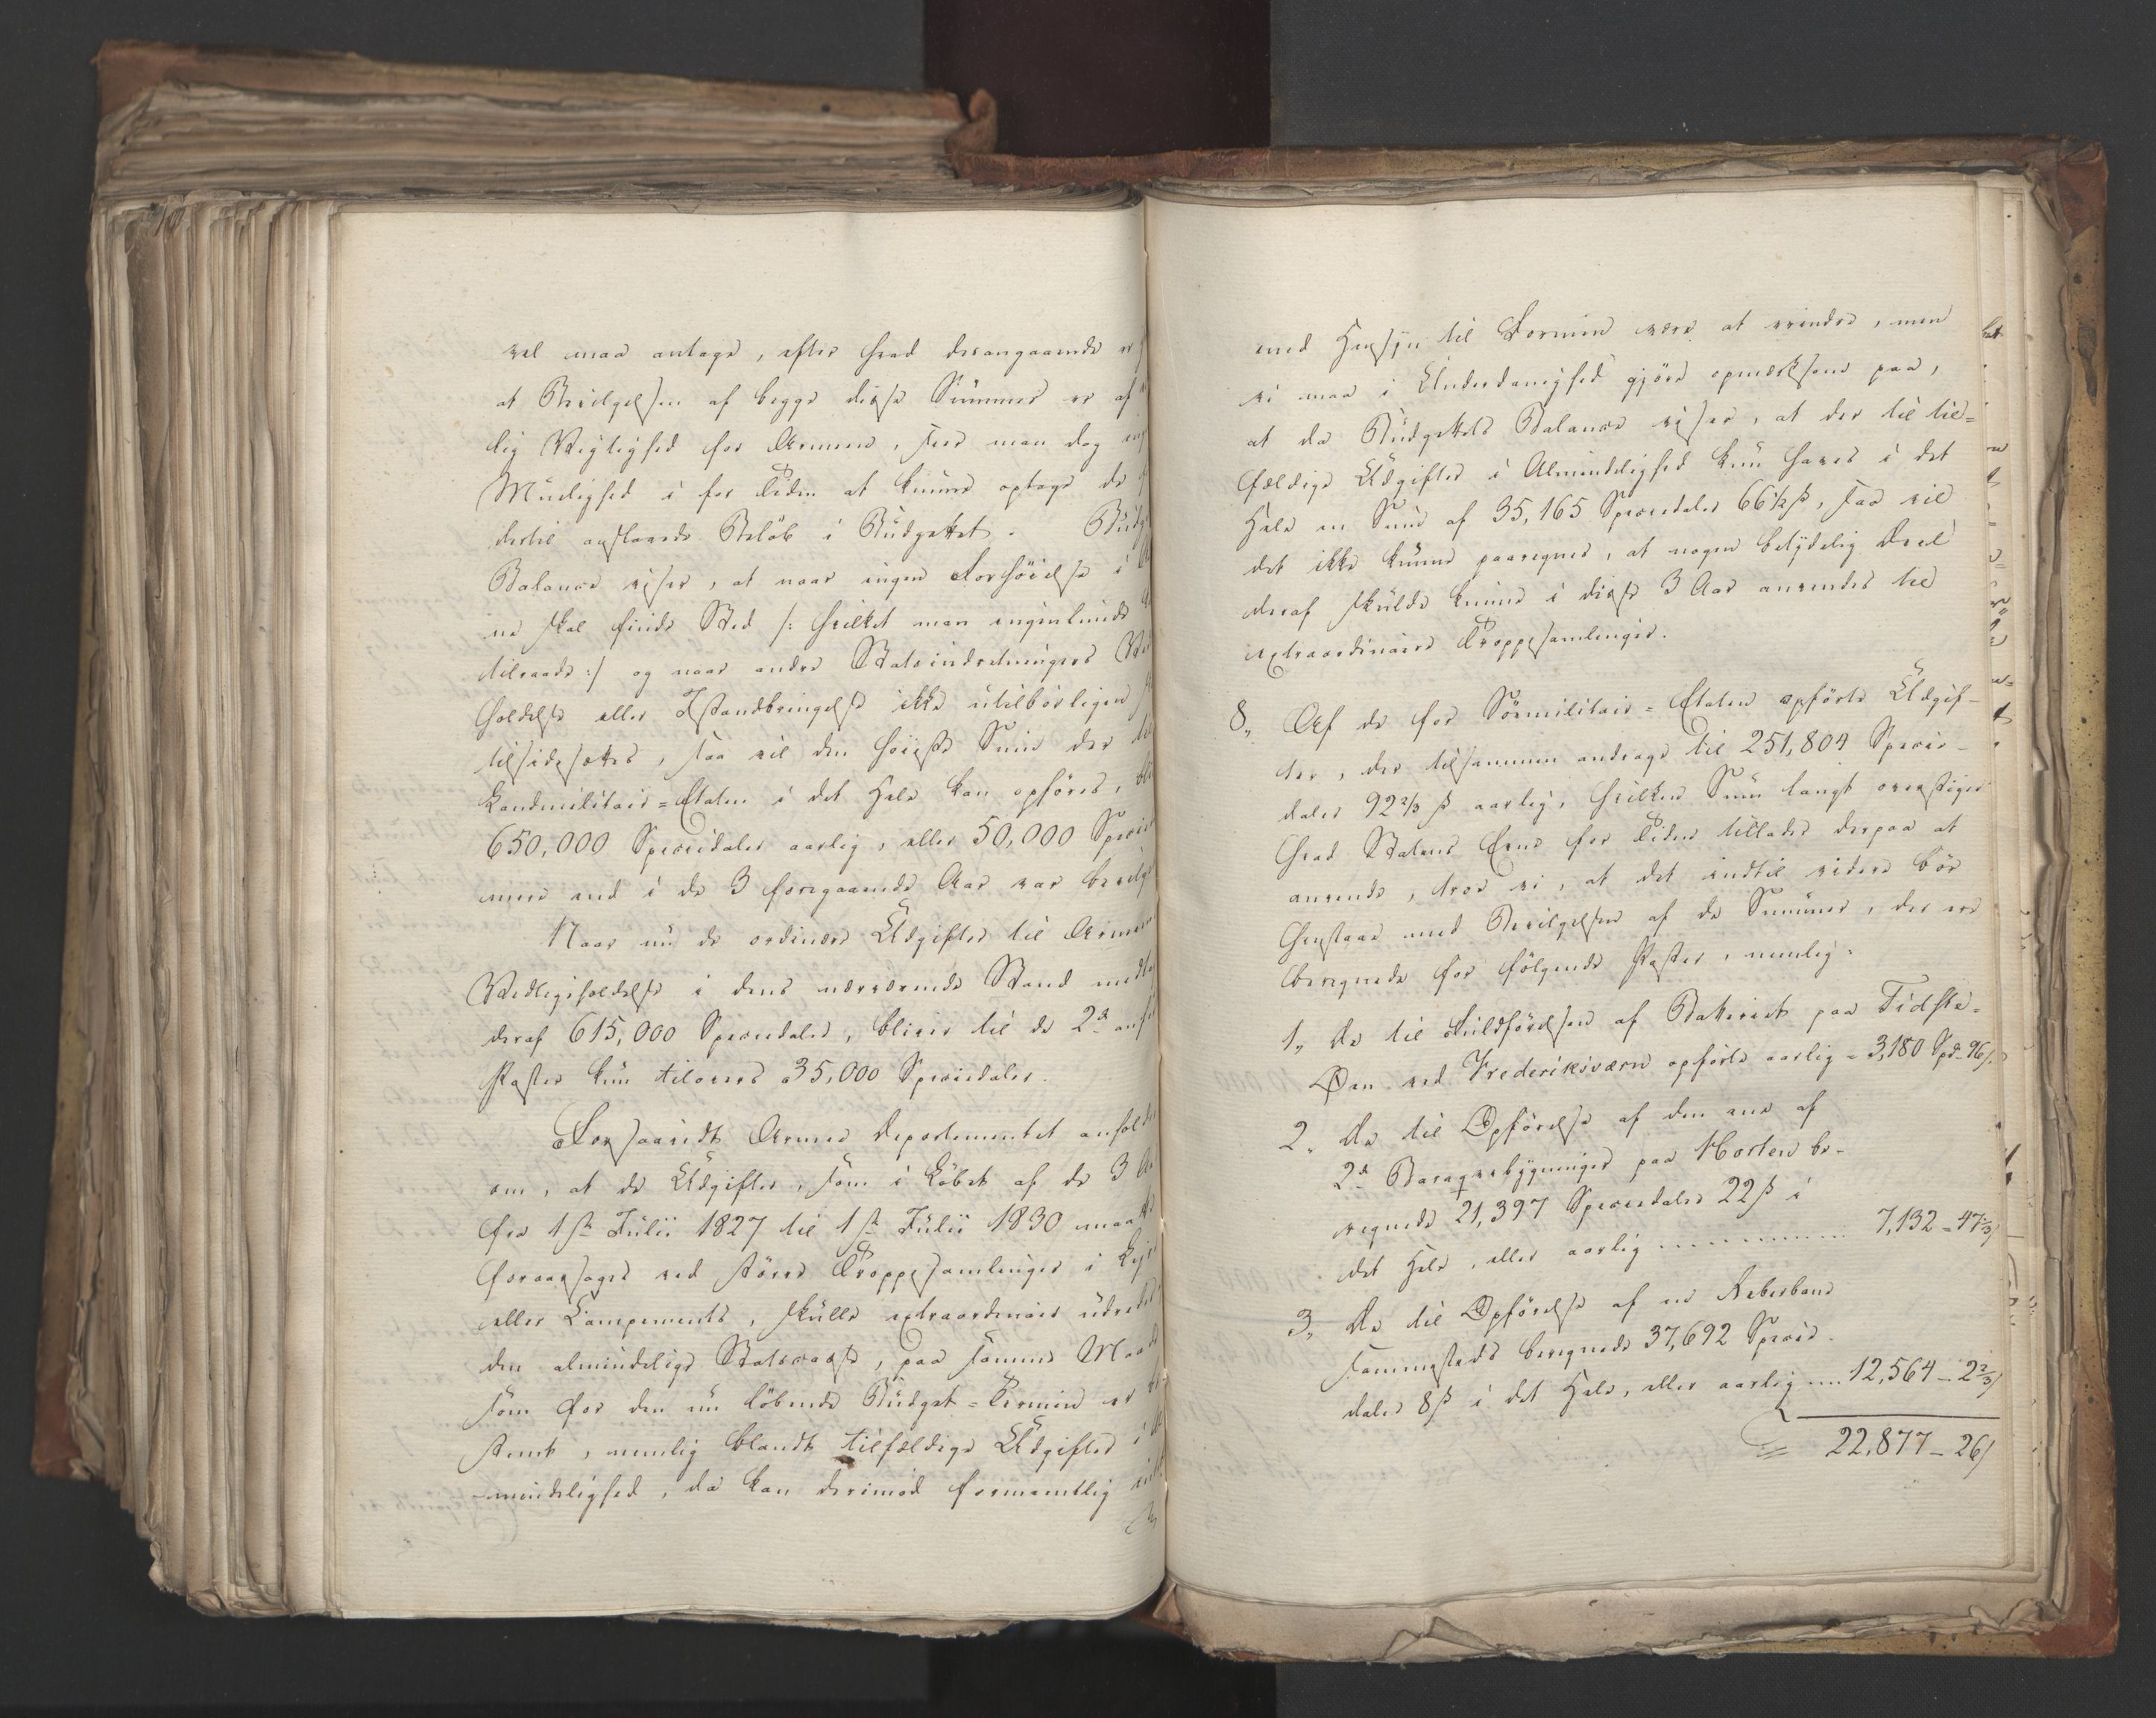 vel maa antage, efter hvad derangaaende er
at Bevilgelsen af begge disse Summer er af
lig Vigtighed for Armeen, seer man dog
Muelighed i for Tiden at kunne optage de
dertil anslaaede Beløb i Budgettet. Budg
Balance viser, at naar ingen Forhøielse i
ne skal finde Sted /: hvilket man ingenlunde
tilraade :/ og naar andre Statsindretningers Ved
holdelse eller Istandbringelse ikke utilbørligen
tilsidesættes, saa vil den høieste Sum der til
Landmilitair-Etaten i det Hele kan opføres, bli
650,000 Speciedaler aarlig, eller 50,000 Specie
mere end i de 3 foregaaende Aar var bevilg
Naar nu de ordinære Udgifter til Armeens
Vedligeholdelse i dens nærværende Stand medta
deraf 615,000 Speciedaler, bliver til de 2de anf
Poster kun tilovers 35,000 Speciedaler.
Forsaavidt Armee Departementet anhold
om, at de Udgifter, som i Løbet af de 3 Aa
fra 1ste Julii 1827 til 1ste Julii 1830 maatte
foraarsages ved større Troppesamlinger i Leir
eller Campements, skulle extraordinair udredes
den almindelige Statscasse, paa samme Maade
som for den nu løbende Budget-Termin er be
stemt, nemlig blandt tilfældige Udgifter i Al
mindelighed, da kan derimod formeentlig intet
med Hensyn til Formen være at erindre, men
vi maa i Underdanighed gjøre opmærksom paa,
at da Budgettets Balance viser, at der til til-
fældige Udgifter i Almindelighed kun haves i det
Hele en Sum af 35,165 Speciedaler 66 1/2 ß, saa vil
det ikke kunne paaregnes, at nogen betydelig Deel
deraf skulde kunne i disse 3 Aar anvendes til
extraordinaire Troppesamlinger.
8., Af de for Sømilitair-Etaten opførte Udgif-
ter, der tilsammen andrage til 251,804 Specie-
daler 92 2/3 ß aarlig, hvilken Sum langt overstiger
hvad Statens Evne for Tiden tillader derpaa at
anvende, troe vi, at det indtil videre bør
henstaae med Bevilgelsen af de Summer, der ere
beregnede for følgende Poster, nemlig:
1., De til Fuldførelsen af Batteriet paa Fidste-
Øen ved Frederiksværn opførte aarlig = 3,180 Spd. 96/.
2., De til Opførelse af den ene af
2de Baraquebygninger paa Horten be-
regnede 21,397 Speciedaler 22 ß i
det Hele, eller aarlig ............ 7,132 = 47 1/3/
3., De til Opførelse af en Reberbane
sammesteds beregnede 37,692 Specie-
daler 8 ß i det Hele, eller aarlig .... 12,564 - 2 2/3/
= 22,877 - 26/